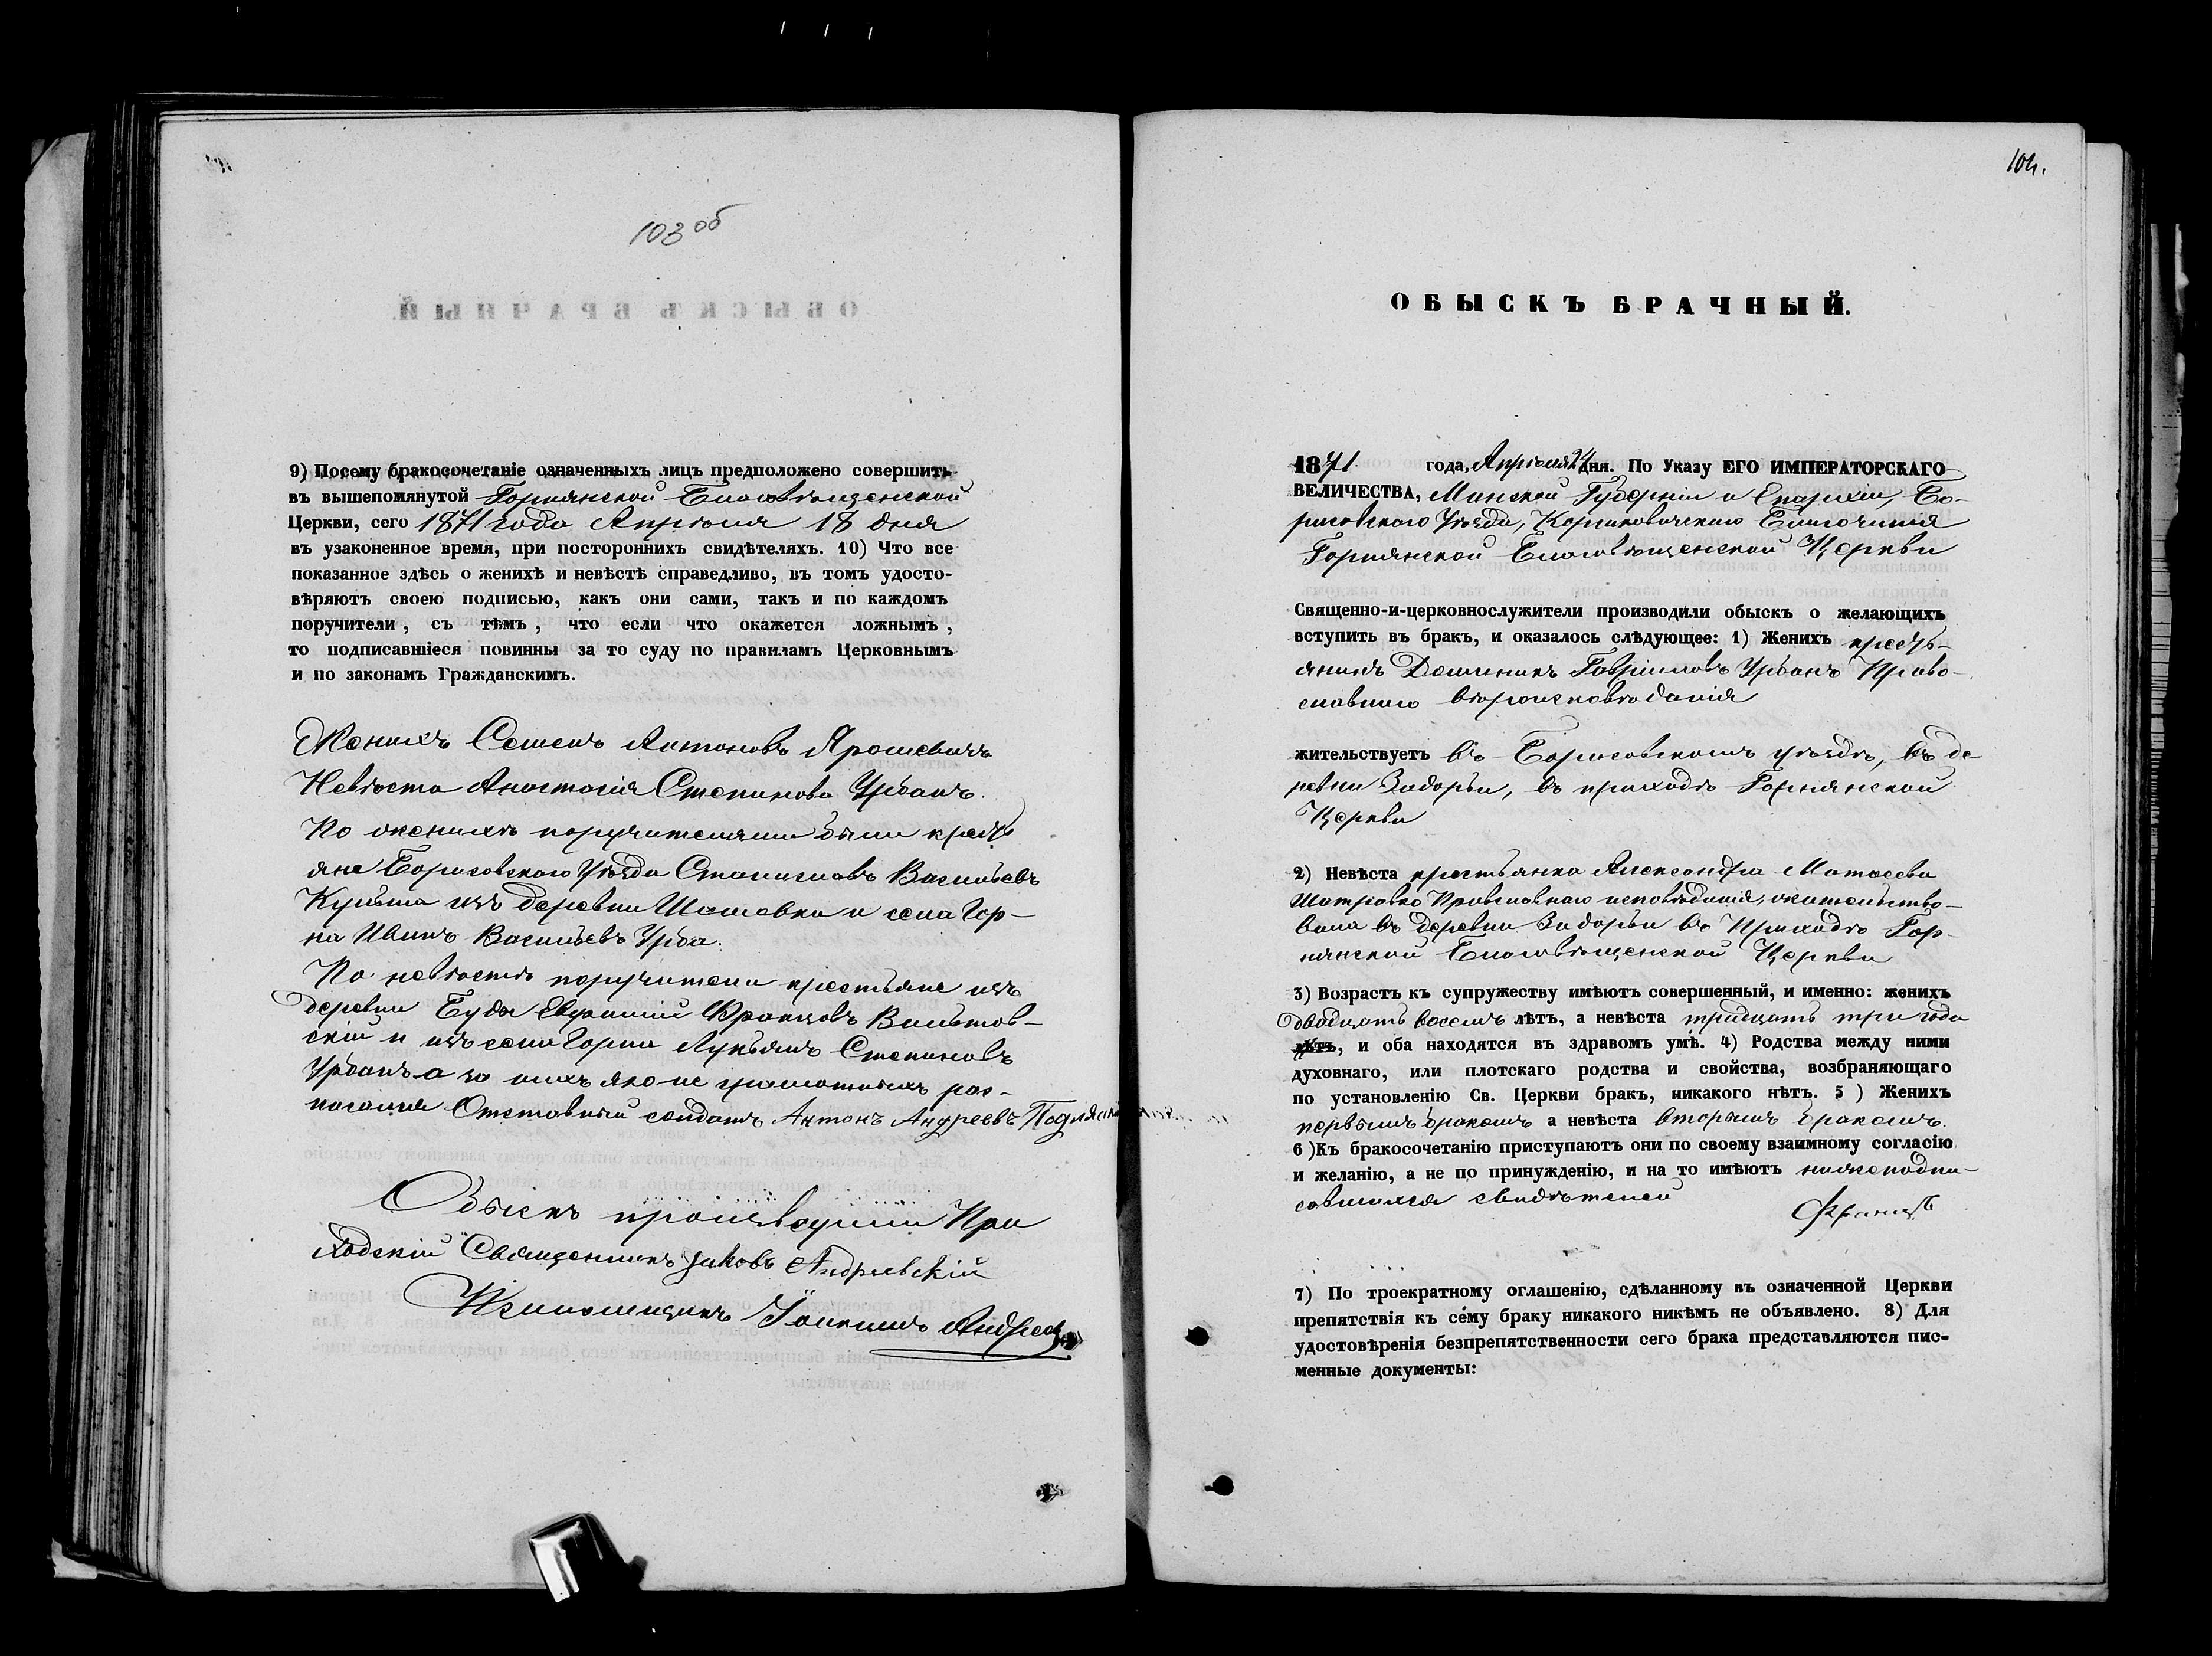 103 об
9) Посему бракосочетаніе означенныхъ лицъ предположено совершить
въ вышепомянутой Горнянской Благовѣщенской
Церкви, сего 1871 года Апрѣля 18 дня
въ узаконенное время, при постороннихъ свидѣтеляхъ. 10) Что все
показанное здѣсь о женихѣ и невѣстѣ справедливо, въ томъ удосто-
вѣряютъ своею подписью, какъ они сами, такъ и по каждомъ
поручители, съ тѣмъ, что если что окажется ложнымъ,
то подписавшіеся повинны за то суду по правиламъ Церковнымъ
и по законамъ Гражданскимъ.
Женихъ Семенъ Антоновъ Ярошевичъ
Невѣста Анастасія Степанова Урбанъ.
По женихѣ поручителями были кресть
яне Борисовскаго Уѣзда Станиславъ Васильевъ
изъ деревни и села Гор-
на Иванъ Васильевъ
По невѣстѣ поручители крестьяне изъ
деревни Буды Францовъ
скій и изъ села Горна Лукьянъ Степановъ
Урбанъ а за нихъ яко не грамотныхъ рос-
писался Отставный солдатъ Антонъ Андреевъ
Обыскъ производили При
ходскій Священникъ Іаковъ Андріевскій
104.
ОБЫСКЪ БРАЧНЫЙ.
1871 года, Апрѣля 24 дня. По Указу ЕГО ИМПЕРАТОРСКАГО
ВЕЛИЧЕСТВА, Минской Губерніи и Епархіи, Бо-
рисовскаго Уѣзда, Благочинія
Горнянской Благовѣщенской Церкви
Священно-и-церковнослужители производили обыскъ о желающихъ
вступить въ бракъ, и оказалось слѣдующее: 1) Женихъ кресть-
янинъ Доминикъ Гавріиловъ Урбанъ Право-
славнаго вѣроисповѣданія
жительствуетъ въ Борисовскомъ уѣздѣ, въ де
ревни Задорьи, въ приходѣ Горнянской
Церкви
2) Невѣста крестьянка Александра Матѳеева
Православнаго исповѣданія, жительство-
вала въ деревни Задорьи въ Приходѣ Гор-
нянской Благовѣщенской Церкви
3) Возрастъ къ супружеству имѣютъ совершенный, и именно: женихъ
двадцать восемь лѣтъ, а невѣста тридцать три года
лѣтъ, и оба находятся въ здравомъ умѣ. 4) Родства между ними
духовнаго, или плотскаго родства и свойства, возбраняющаго
по установленію Св. Церкви бракъ, никакого нѣтъ. 5 ) Женихъ
первымъ бракомъ а невѣста вторымъ бракомъ.
6 )Къ бракосочетанію приступаютъ они по своему взаимному согласію
и желанію, а не по принужденію, и на то имѣютъ нижеподпи-
савшихся свидѣтелей
7) По троекратному оглашенію, сдѣланному въ означенной Церкви
препятствія къ се́му браку никакого никѣмъ не объявлено. 8) Для
удостовѣренія безпрепятственности сего брака представляются пис-
менные документы: